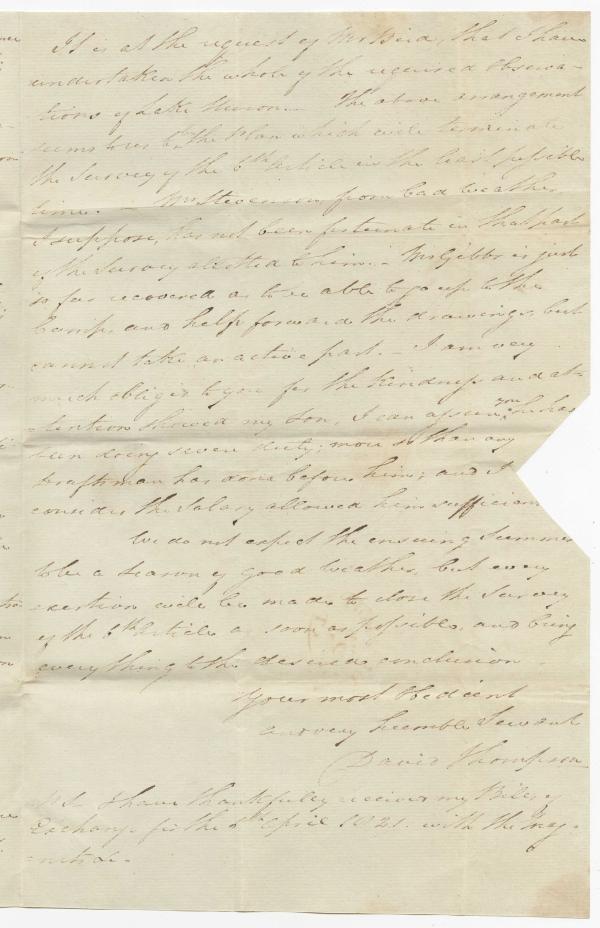 It is at the request of Mr Bird, that I have
undertaken the whole of the required Observa-
tions of Lake Huron. — The above arrangement
seems to us the Plan which will terminate
the Survey of the 6th Article in the least possible
time. — Mr Stevenson from bad weather
I suppose, has not been fortunate in that part
of the Survey allotted to him. — Mr Gibbs is just
so far recovered as to be able to go up to the
Camp and help forward the drawings, but
cannot take an active part. — I am very
much obliged to you for the Kindness and at-
-tention showed my Son, I can assure you he has
been doing severe duty; more so than any
draftsman has done before him; and I
consider the Salary allowed him sufficient
We do not expect the ensuing Summer
to be a season of good Weather, but every
exertion will be made to close the Survey
of the 6th Article as soon as possible, and bring
every thing to the desired conclusion.
Your most Obedient
and very humble Servant
David Thompson
P S I have thankfully received my Bills of
Exchange for the April 1821. with the